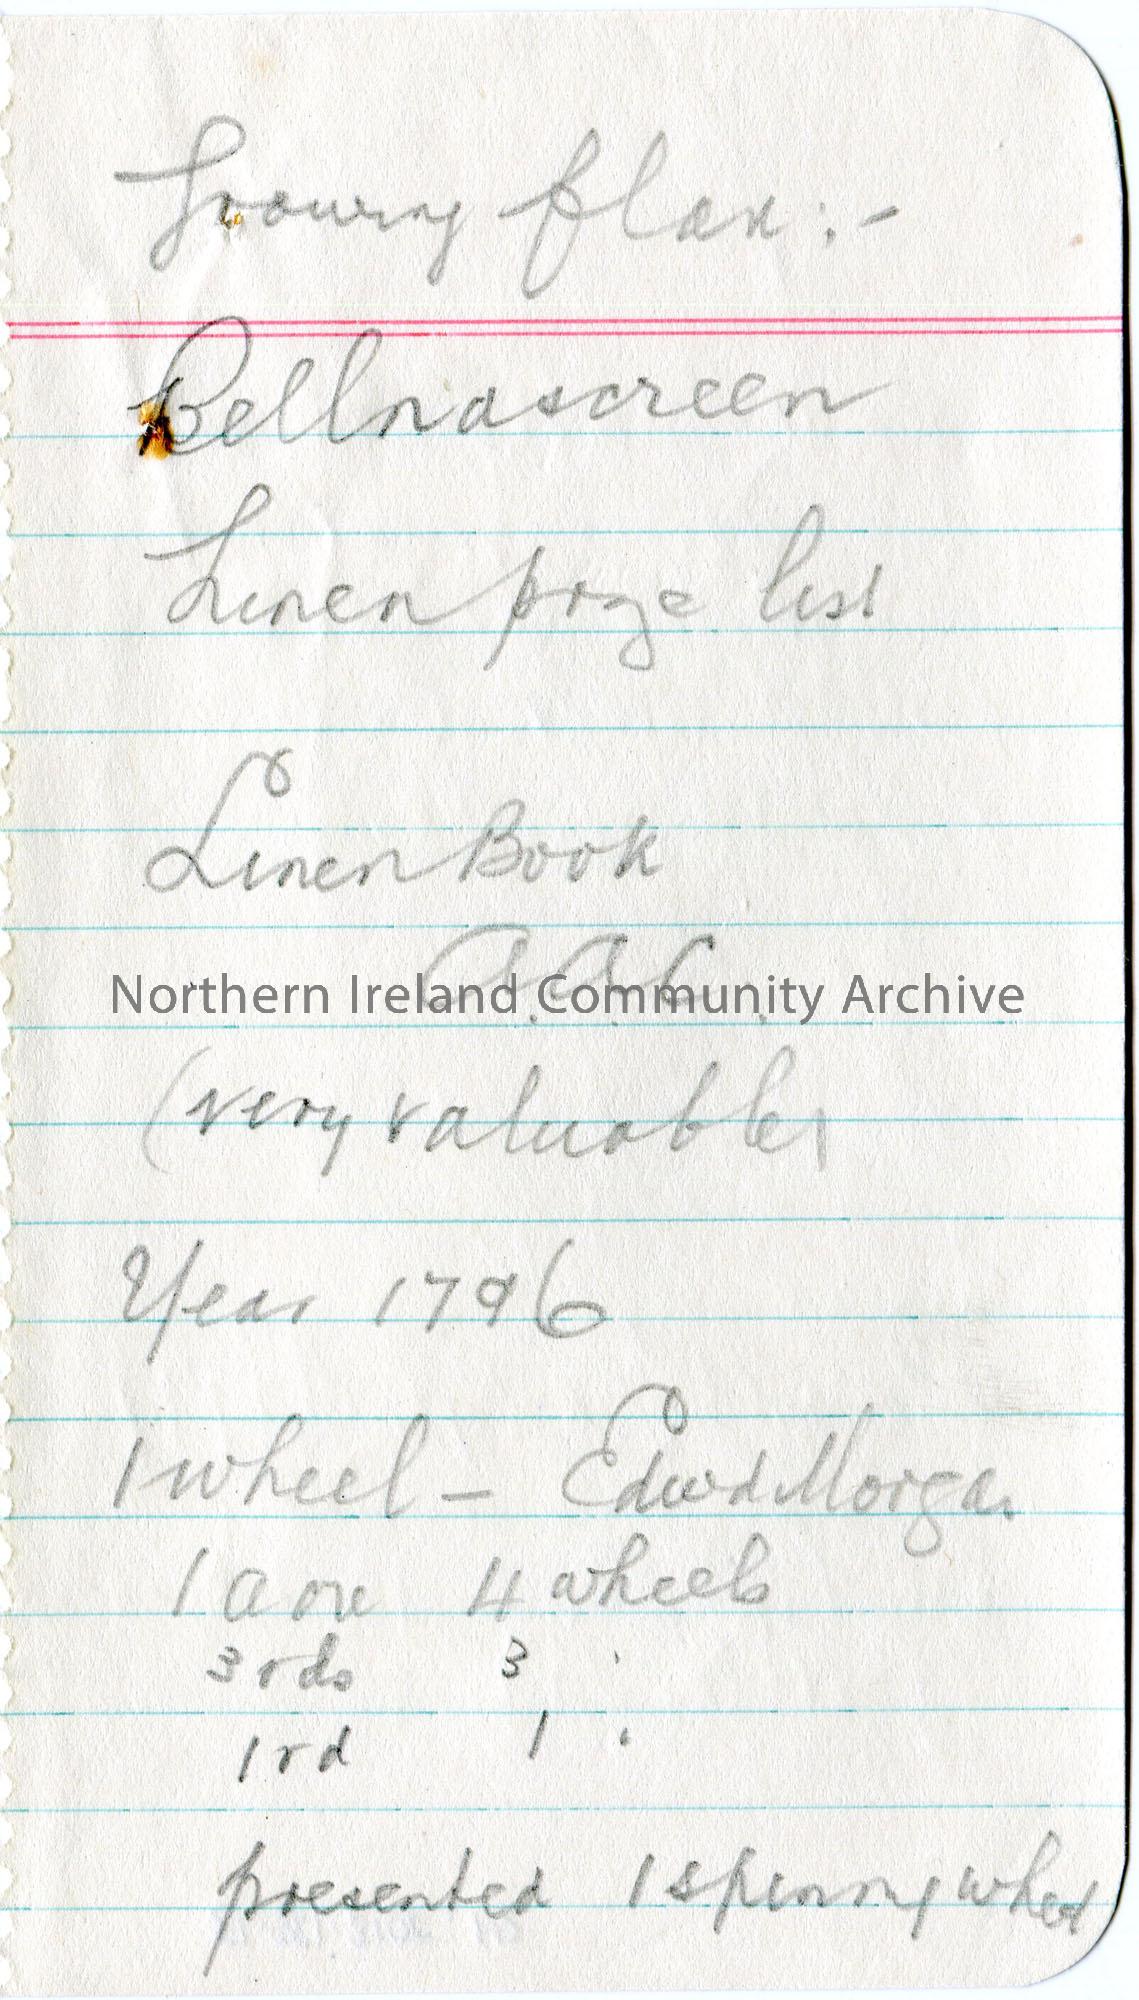 Growing flax :-
Bellnascreen
Linen prize list
Linen Book
A.A.C.
Northern Ireland Community Archive
(very valuable)
Year 1796
1 wheel - Edwd Morgan
1 acre 4 wheels
3 rds 3 "
1 rd 1 "
presented 1 spinning wheel